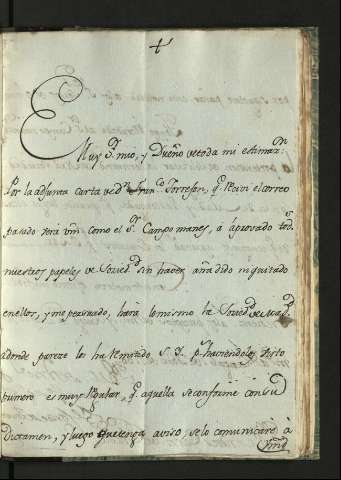 +
Muy S.r mio, y Dueño de toda mi estimaz.on
Por la adjunta carta de d.n Fran.co Torresan, q.e Recivi el correo
pasado verá vm como el S.r Campomanes, á aprovado tod.s
nuestros papeles de Socied.d sin hacer añadido ni quitado
en ellos, y me persuado, hará lo mismo la Socied.d de Mad.d
adonde pareze los ha Remitido S. Y. p.s haviendolos visto
primero es muy Regular, q.e aquella se conforme con su
Dictamen, y luego que tenga aviso, se lo comunicaré á